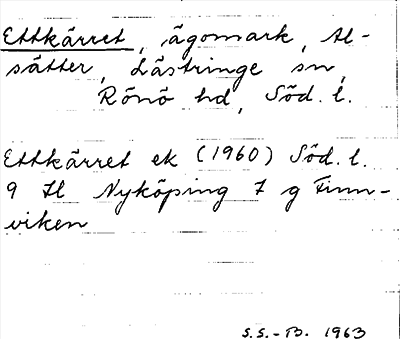 Ettkärret, ägomark, Al-
sätter, Lästringe sn,
Rönö hd, Söd. l.
Ettkärret ek (1960) Söd. l.
9 H Nyköping 7 g Finn-
viken
S.S.-B. 1963